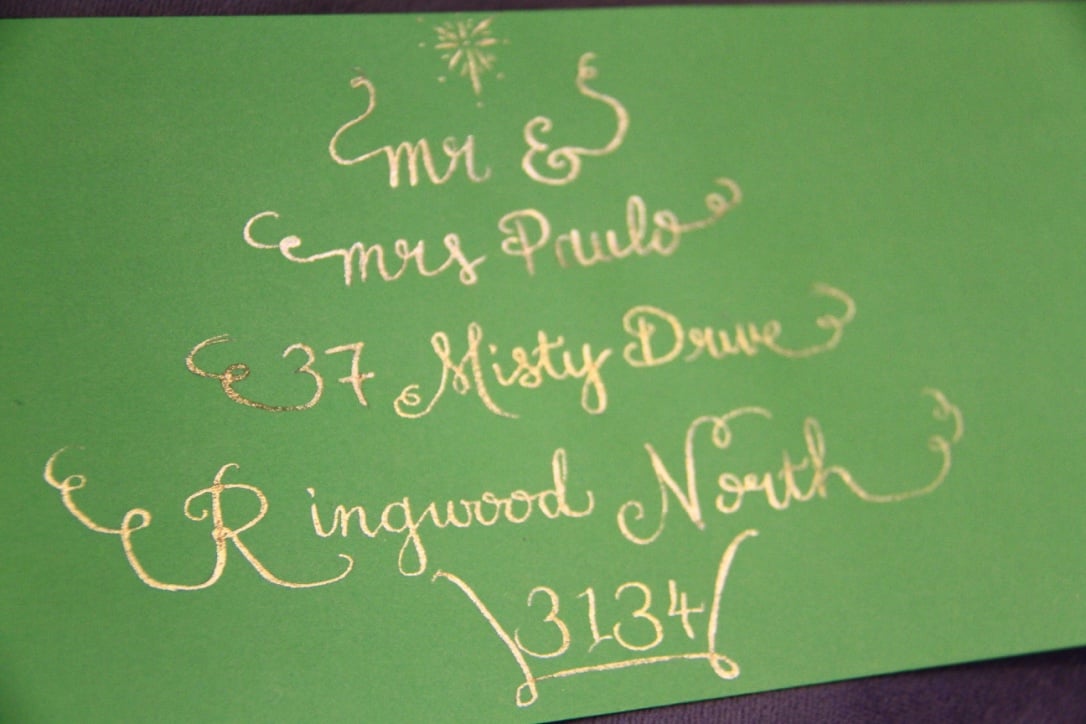 Mr &
Mrs Paulo
37 Misty Drive
Ringwood North
3134